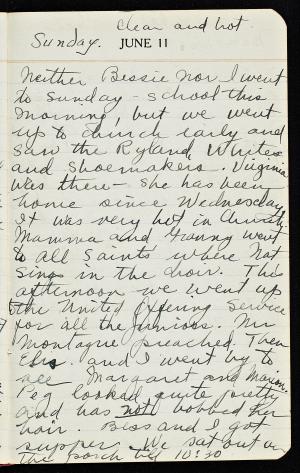 clear and hot.
Sunday. JUNE 11
Neither Bessie nor I went
to Sunday-school this
morning, but we went
up to church early and
saw the Ryland, Whites
and Shoemakers. Virginia
was there - She has been
home since Wednesday.
It was very hot in
Mamma and Granny went
to all Saints where Nat
Sings in the choir. This
afternoon we went up
to the United Offering Service
for all the Juniors. Mr
Montague preached. Then
and I went by to
see Margaret and Marion.
Peg looked quite pretty
and has not bobbed her
hair. Bess and I got
supper. We sat out on
the porch till 10:30